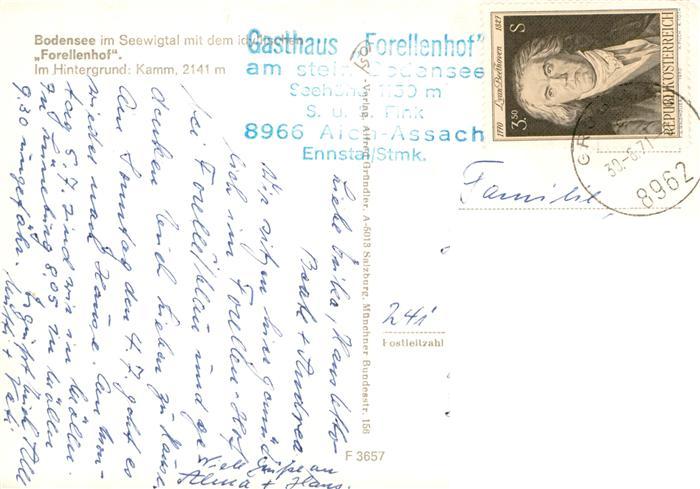 Bodensee im Seewigtal mit dem idyllischen
„Forellenhof“.
Im Hintergrund: Kamm, 2141 m
Gasthaus „Forellenhof“
am stein. Bodensee
Seehöhe 1150 m
S. u. Fink
8966 Aich-Assach
Ennstal/Stmk.
1770 Ludwig van Beethoven 1827
S 3.50
REPUBLIK ÖSTERREICH
30.-6.71
8962
Familie
241
Postleitzahl
Verlag Alfred Gründler, A-5013 Salzburg, Münchner Bundesstr. 156
F 3657
Liebe Erika, Hans Peter
+ Andrea
Wir sitzen hier gemüt-
lich im Forellen-Hof
bei Forelle blau und ge-
denken Euch lieben zu Hause
Am Sonntag den 4.7. geht es
wieder nach Hause. Am Mon-
tag 5.7. sind wir in
8.05 in
9.30 ungefähr.
Es grüßt Euch alle
Mutti + Vati
Viele Grüße an
Alma + Hans.